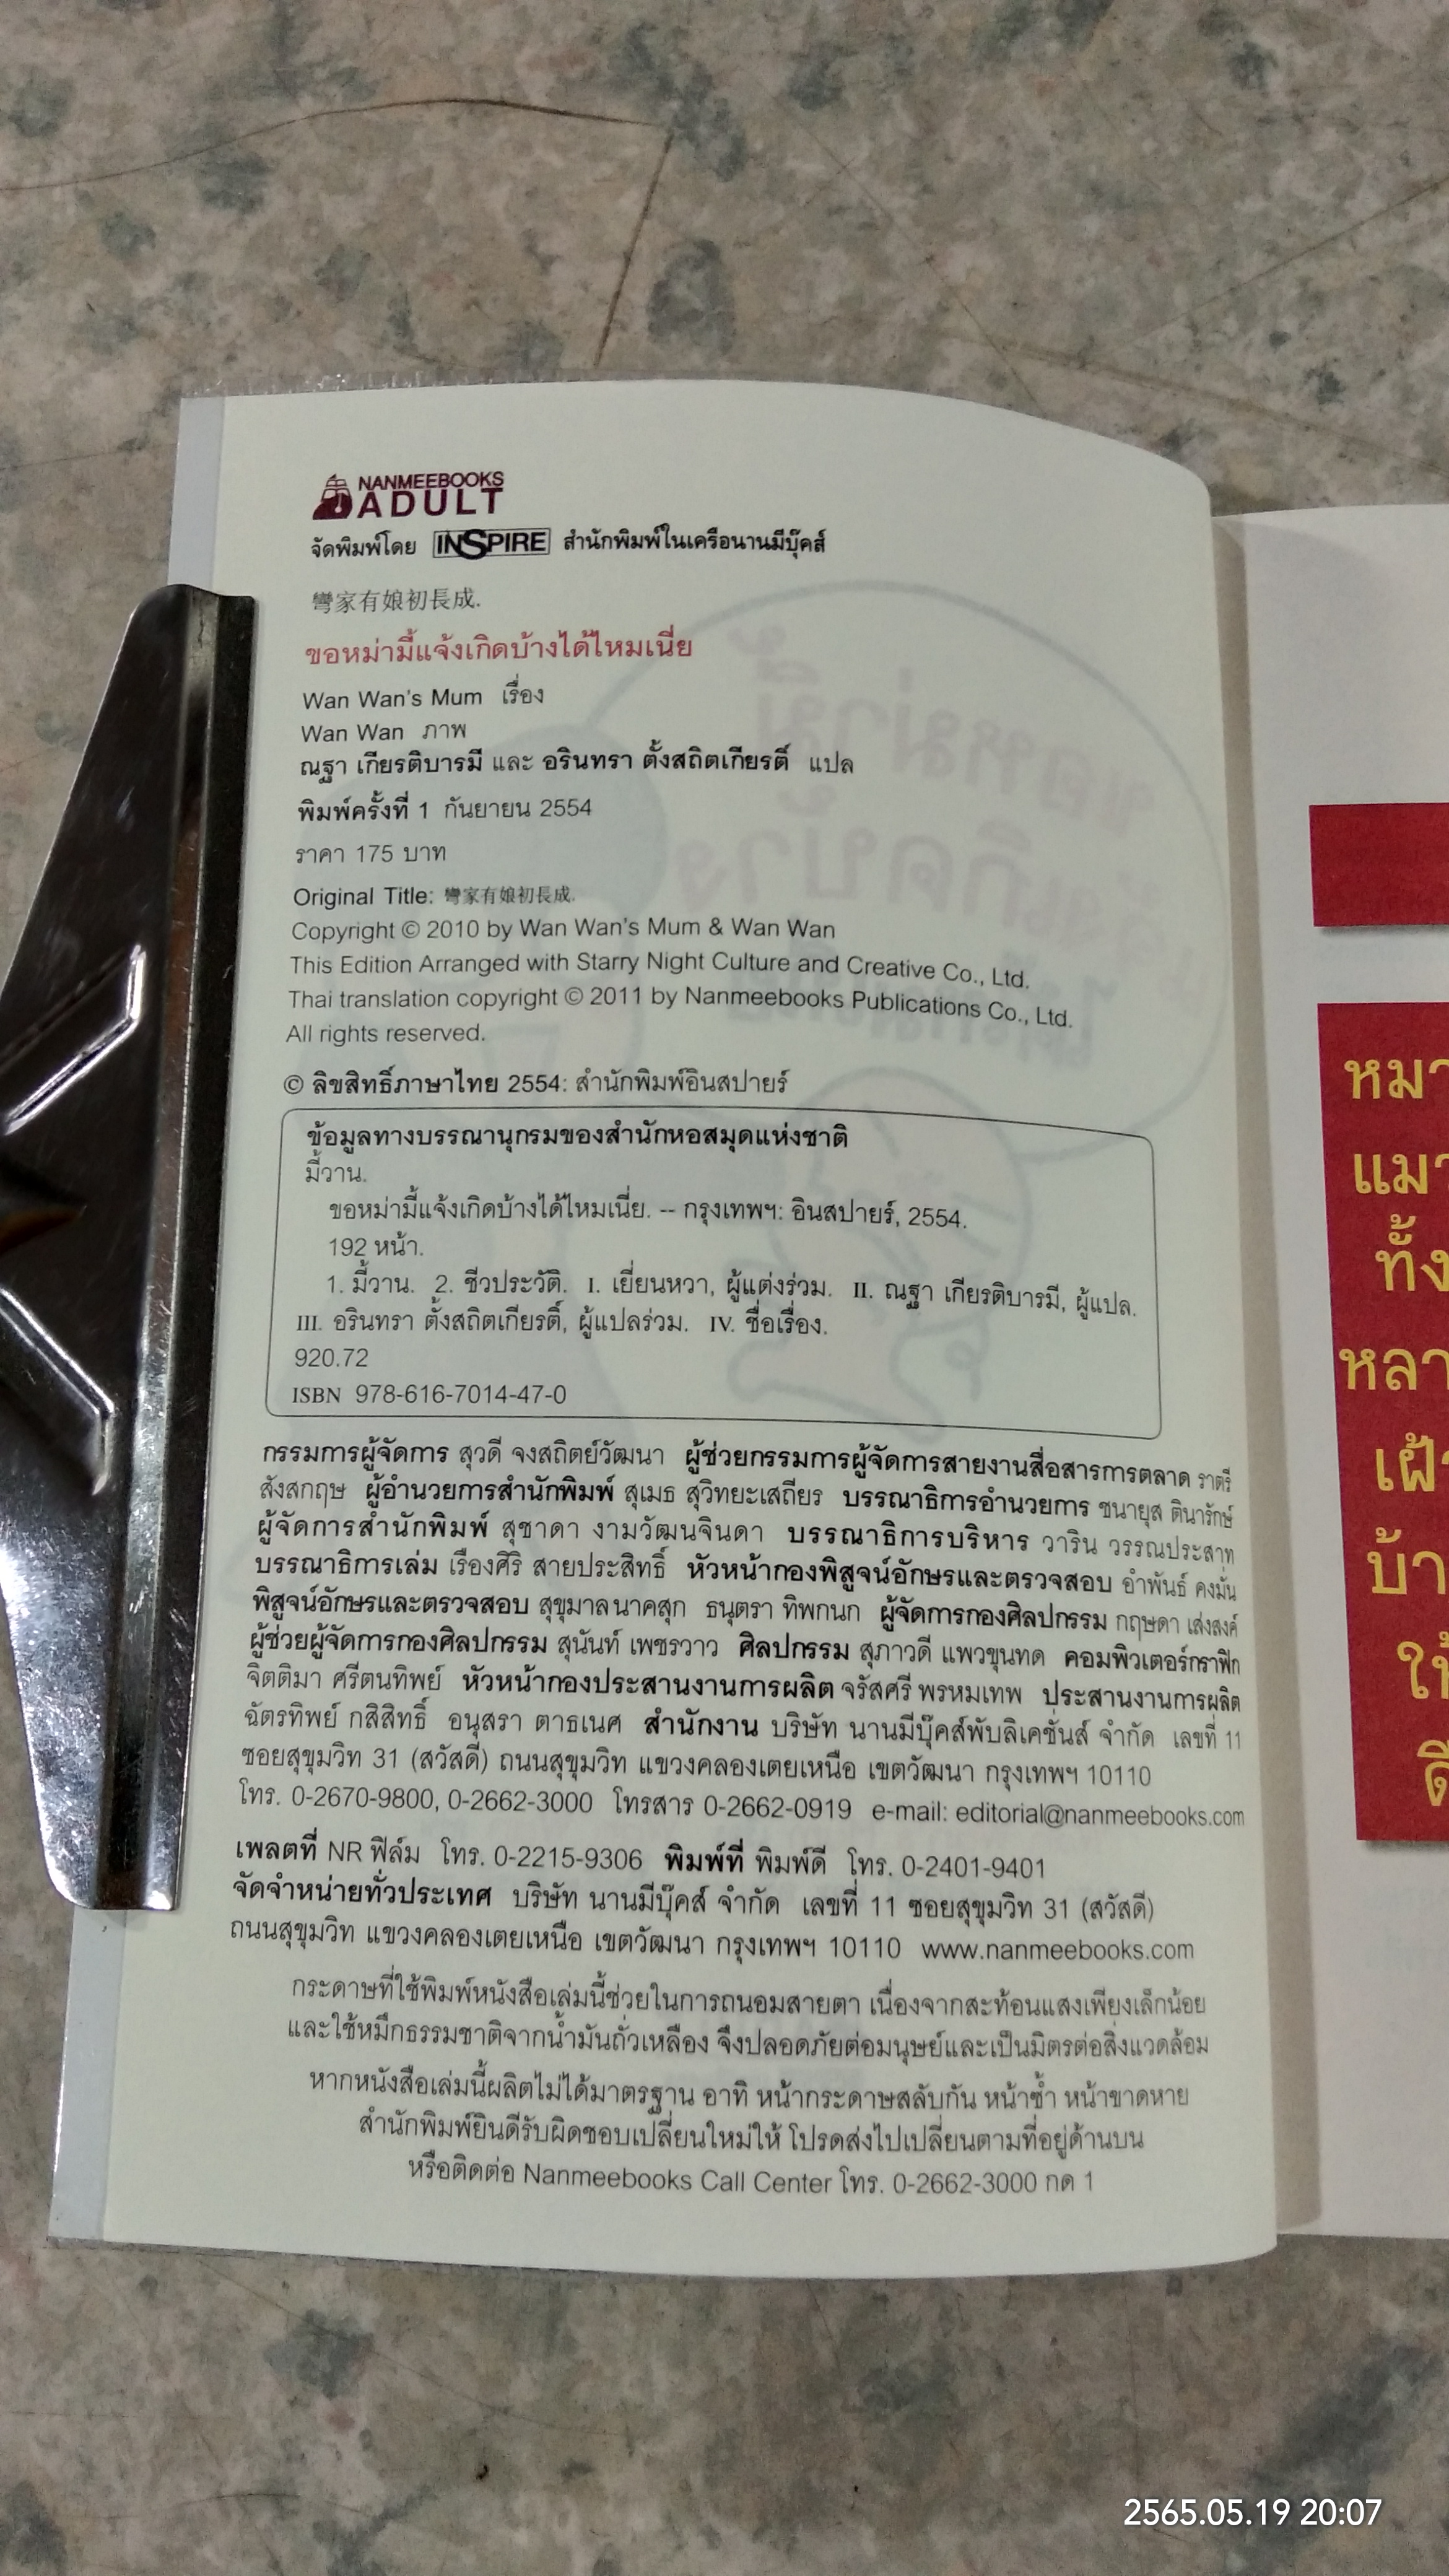 NANMEEBOOKS
ADULT
จัดพิมพ์โดย INSPIRE สำนักพิมพ์ในเครือนานมีบุ๊คส์
彎家有娘初長成.
ขอหม่ามี้แจ้งเกิดบ้างได้ไหมเนี่ย
Wan Wan's Mum เรื่อง
Wan Wan ภาพ
ณฐา เกียรติบารมี และ อรินทรา ตั้งสถิตเกียรติ์ แปล
พิมพ์ครั้งที่ 1 กันยายน 2554
ราคา 175 บาท
Original Title: 彎家有娘初長成.
Copyright © 2010 by Wan Wan's Mum & Wan Wan
This Edition Arranged with Starry Night Culture and Creative Co., Ltd.
Thai translation copyright © 2011 by Nanmeebooks Publications Co., Ltd.
All rights reserved.
© ลิขสิทธิ์ภาษาไทย 2554: สำนักพิมพ์อินสปายร์
ข้อมูลทางบรรณานุกรมของสำนักหอสมุดแห่งชาติ
มี้วาน.
ขอหม่ามี้แจ้งเกิดบ้างได้ไหมเนี่ย. -- กรุงเทพฯ: อินสปายร์, 2554.
192 หน้า.
1. มี้วาน. 2. ชีวประวัติ. I. เยี่ยนหวา, ผู้แต่งร่วม. II. ณฐา เกียรติบารมี, ผู้แปล.
III. อรินทรา ตั้งสถิตเกียรติ์, ผู้แปลร่วม. IV. ชื่อเรื่อง.
920.72
ISBN 978-616-7014-47-0
กรรมการผู้จัดการ สุวดี จงสถิตย์วัฒนา ผู้ช่วยกรรมการผู้จัดการสายงานสื่อสารการตลาด ราตรี
สังสกฤษ ผู้อำนวยการสำนักพิมพ์ สุเมธ สุวิทยะเสถียร บรรณาธิการอำนวยการ ชนายุส ตินารักษ์
ผู้จัดการสำนักพิมพ์ สุชาดา งามวัฒนจินดา บรรณาธิการบริหาร วาริน วรรณประสาท
บรรณาธิการเล่ม เรืองศิริ สายประสิทธิ์ หัวหน้ากองพิสูจน์อักษรและตรวจสอบ อำพันธ์ คงมั่น
พิสูจน์อักษรและตรวจสอบ สุขุมาลนาคสุก ธนุตรา ทิพกนก ผู้จัดการกองศิลปกรรม กฤษดา เส่งสงค์
ผู้ช่วยผู้จัดการกองศิลปกรรม สุนันท์ เพชรวาว ศิลปกรรม สุภาวดี แพวขุนทด คอมพิวเตอร์กราฟิก
จิตติมา ศรีตนทิพย์ หัวหน้ากองประสานงานการผลิต จรัสศรี พรหมเทพ ประสานงานการผลิต
ฉัตรทิพย์ กสิสิทธิ์ อนุสรา ตาธเนศ สำนักงาน บริษัท นานมีบุ๊คส์พับลิเคชั่นส์ จำกัด เลขที่ 11
ซอยสุขุมวิท 31 (สวัสดี) ถนนสุขุมวิท แขวงคลองเตยเหนือ เขตวัฒนา กรุงเทพฯ 10110
โทร. 0-2670-9800, 0-2662-3000 โทรสาร 0-2662-0919 e-mail: editorial@nanmeebooks.com
เพลตที่ NR ฟิล์ม โทร. 0-2215-9306 พิมพ์ที่ พิมพ์ดี โทร. 0-2401-9401
จัดจำหน่ายทั่วประเทศ บริษัท นานมีบุ๊คส์ จำกัด เลขที่ 11 ซอยสุขุมวิท 31 (สวัสดี)
ถนนสุขุมวิท แขวงคลองเตยเหนือ เขตวัฒนา กรุงเทพฯ 10110 www.nanmeebooks.com
กระดาษที่ใช้พิมพ์หนังสือเล่มนี้ช่วยในการถนอมสายตา เนื่องจากสะท้อนแสงเพียงเล็กน้อย
และใช้หมึกธรรมชาติจากน้ำมันถั่วเหลือง จึงปลอดภัยต่อมนุษย์และเป็นมิตรต่อสิ่งแวดล้อม
หากหนังสือเล่มนี้ผลิตไม่ได้มาตรฐาน อาทิ หน้ากระดาษสลับกัน หน้าซ้ำ หน้าขาดหาย
สำนักพิมพ์ยินดีรับผิดชอบเปลี่ยนใหม่ให้ โปรดส่งไปเปลี่ยนตามที่อยู่ด้านบน
หรือติดต่อ Nanmeebooks Call Center โทร. 0-2662-3000 กด 1
หมา
แมว
ทั้ง
หลา
เฝ้า
บ้า
ให้
ดี
2565.05.19 20:07